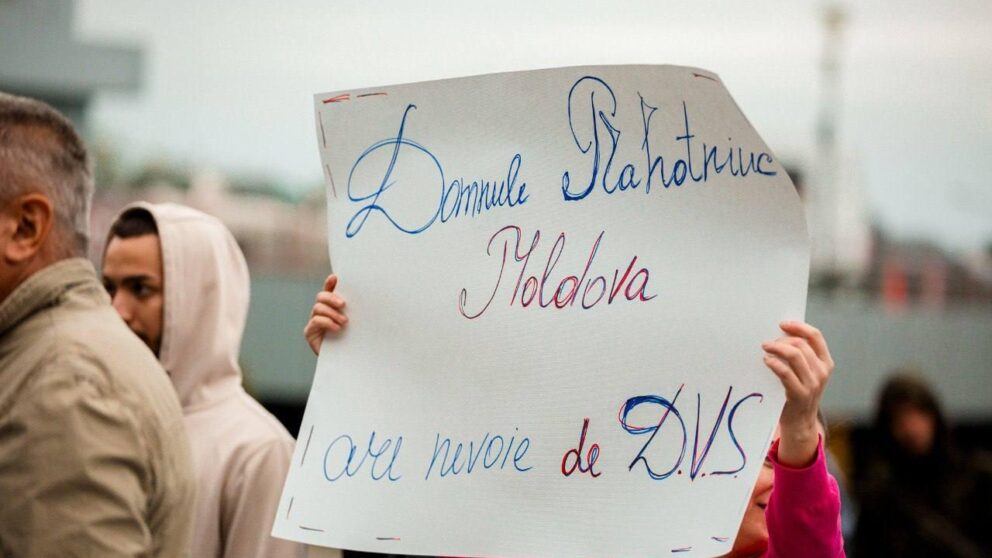 Domnule Plahotniuc
Moldova
are nevoie de D.V.S.